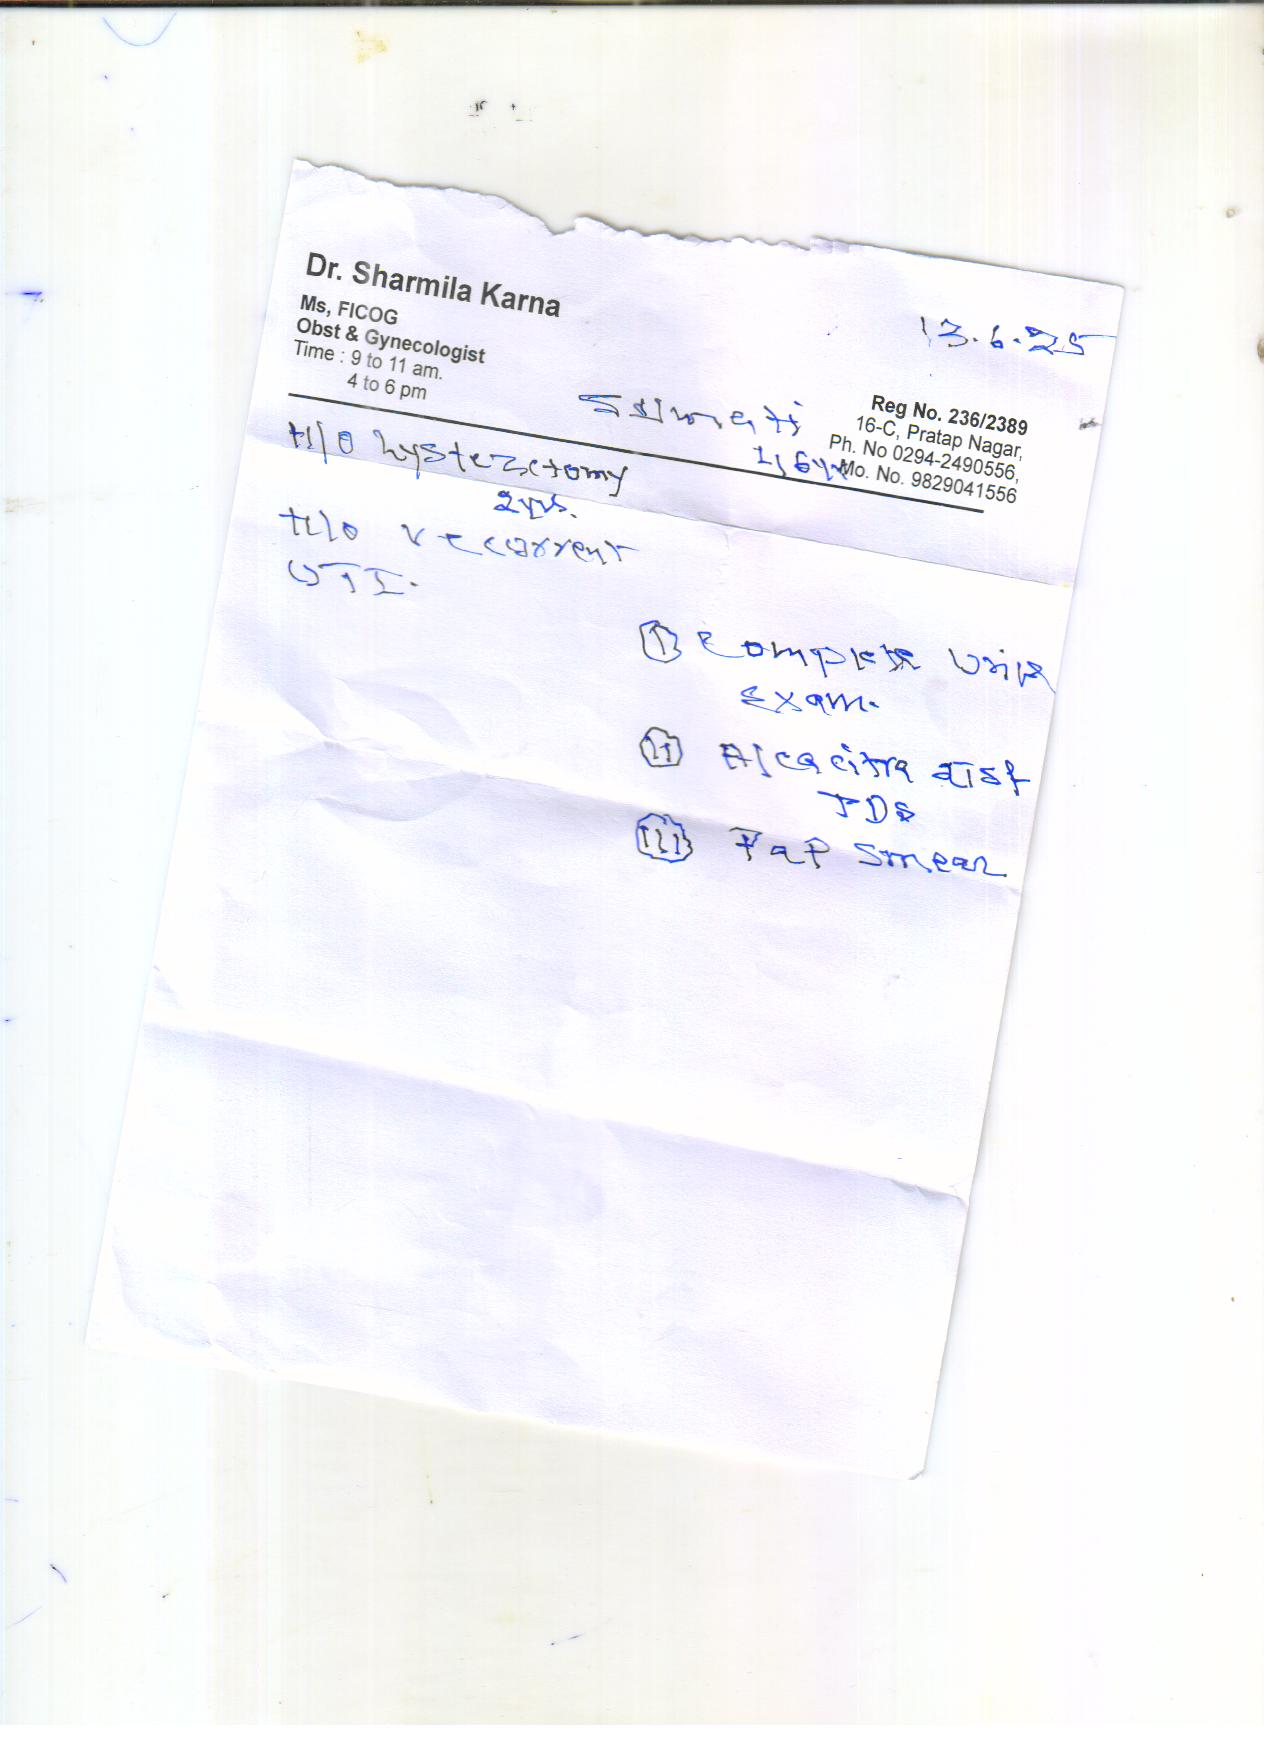 Dr. Sharmila Karna
Ms, FICOG
Obst & Gynecologist
Time : 9 to 11 am.
4 to 6 pm
13.6.25
Reg No. 236/2389
16-C, Pratap Nagar,
Ph. No 0294-2490556,
Mo. No. 9829041556
H/o hysterectomy
2yrs.
H/o recurrent
UTI.
(I) Complete Urine
Exam.
(II) Alcacitra
TDS
(III) Pap Smear